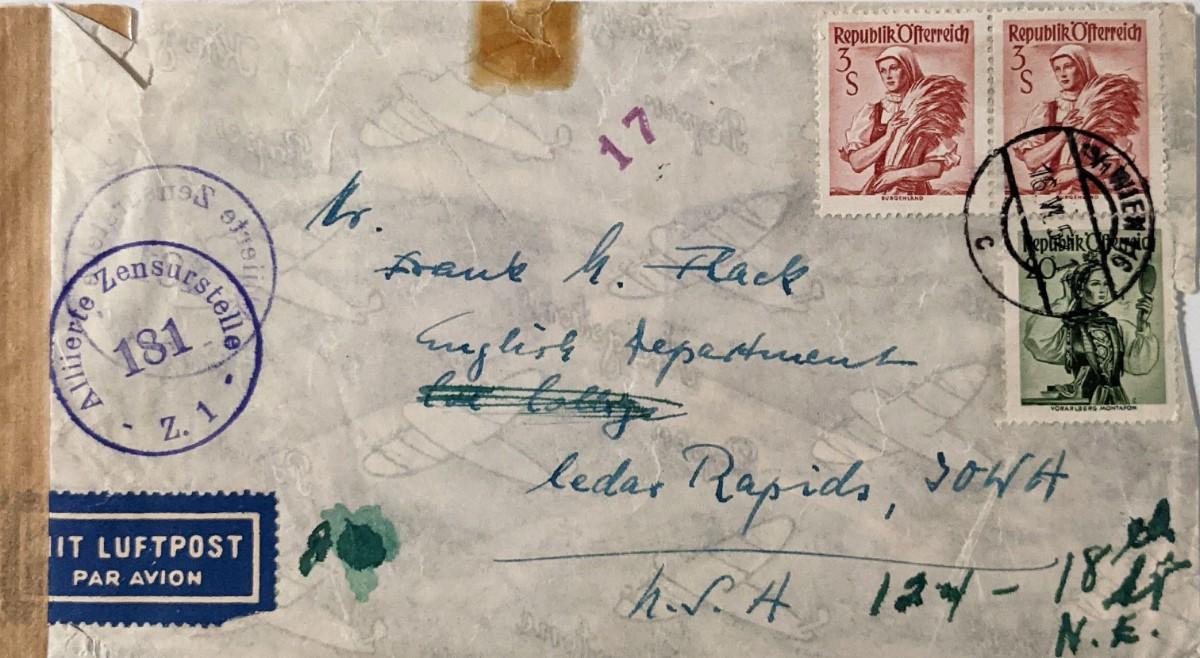 Republik Österreich
3 S
BURGENLAND
Republik Österreich
3 S
BURGENLAND
WIEN
16. VI. 5
C
Republik Österreich
VORARLBERG MONTAFON
17
Alliierte Zensurstelle
181
Z. 1
Alliierte Zensurstelle
Mr.
Frank M. Flack
English Department
Coe College
Cedar Rapids, IOWA
U.S.A
124 - 18th St
N.E.
MIT LUFTPOST
PAR AVION